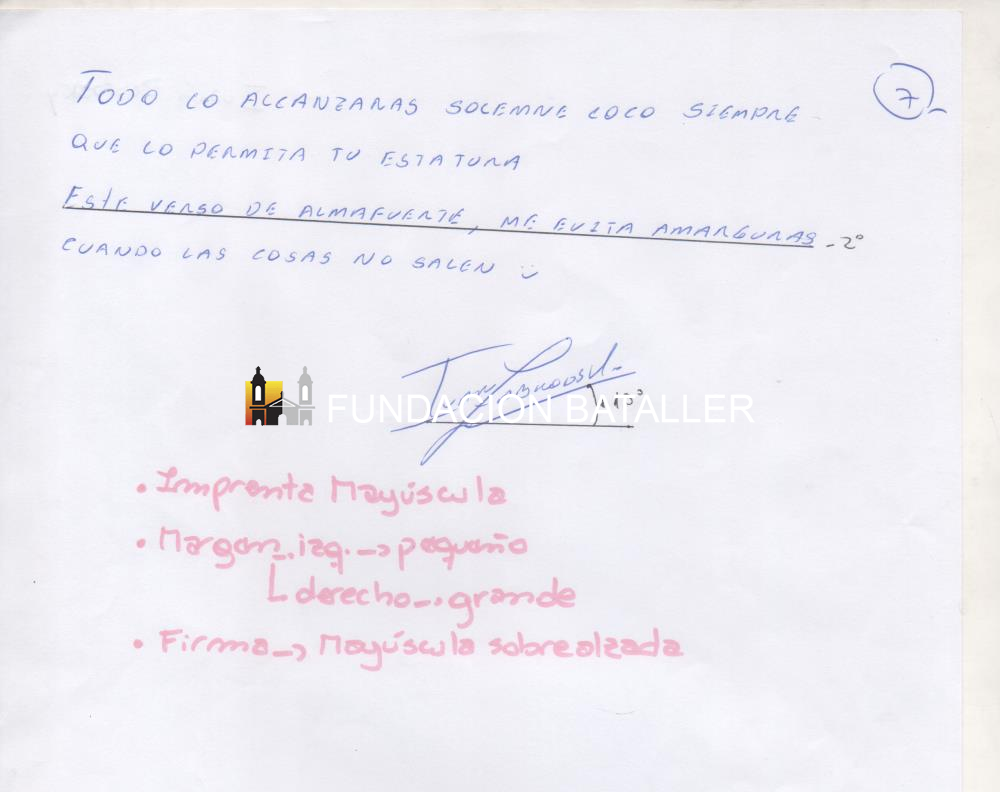 7
TODO LO ALCANZARAS SOLEMNE LOCO SIEMPRE
QUE LO PERMITA TU ESTATURA
ESTE VERSO DE ALMAFUERTE, ME EVITA AMARGURAS - 2°
CUANDO LAS COSAS NO SALEN
FUNDACION BATALLER
• Imprenta Mayúscula
• Margen izq. → pequeño
derecho → grande
• Firma → Mayúscula sobrealzada